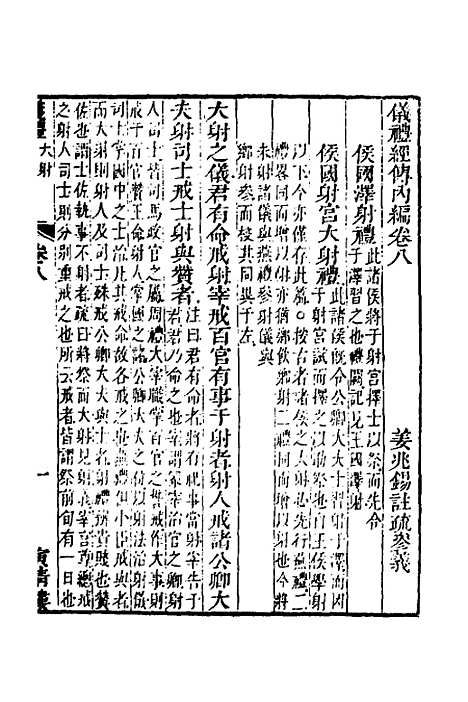 儀禮經傳內編卷八
姜兆錫註疏參義
侯國澤射禮 此諸侯將于射宮擇士以祭而先令
于澤習之也禮闕記見王國澤射
侯國射宮大射禮 此諸侯既令公卿大夫士習射于澤而因
于射宮試而擇之也自王侯學射
以下今亦僅存此篇○按古者諸矦之大射必先行燕禮二
禮畧同而增以射亦猶鄉飲鄉射二禮同而增以射也故
未射諸儀與燕禮參射儀與
鄉射參而枝其同異于左
大射之儀君有命戒射宰戒百官有事于射者射人戒諸公卿大
夫射司士戒士射與贊者 注曰君有命者將有祀事當射宰告于
君君乃命之也宰謂冢宰治官之卿射
人司士皆司馬政官之屬周禮大宰職掌百官之誓戒作大事則
戒于百官贊王命射人掌國之諸公卿大夫之位以射法治射儀
司士掌國中之士治凡其戒命故各戒之也燕禮但小臣戒與者
而大射則射人及司士殊戒公卿大夫與士者射禮辨貴賤也贊
佐也謂士佐執事不射者疏曰將祭而大射見冢宰宮尊總戒
之射人司士則分別重戒之也所云戒者皆謂祭前旬有一日也
大射
卷八
一
寅清樓